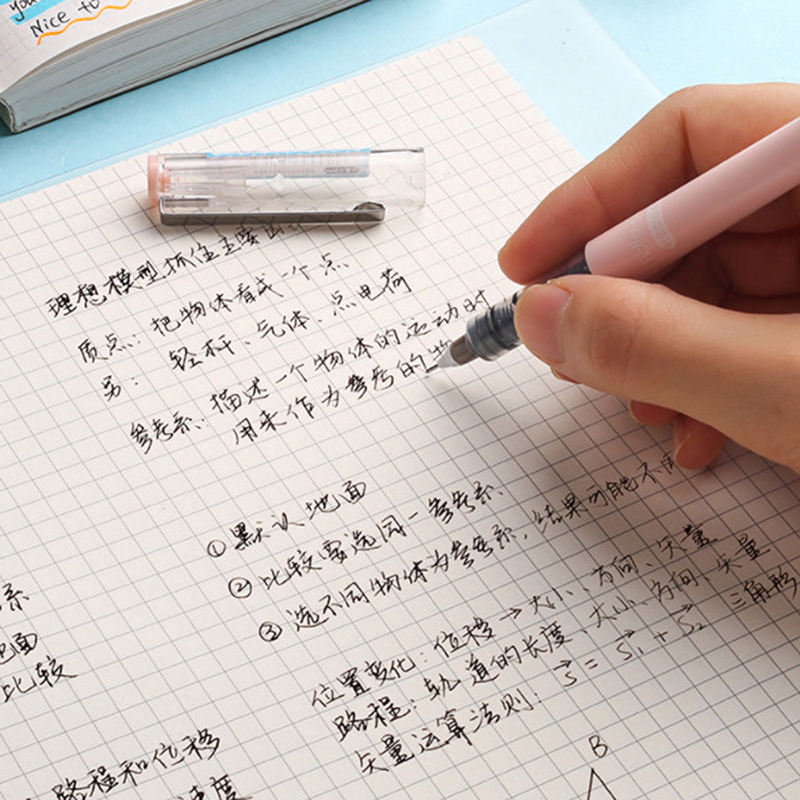 you
Nice to
理想模型抓住主要
质点：把物体看成一个点
另：轻杆、气体、点电荷
参考系：描述一个物体的运动时
用来作为参考的物
①默认地面
②比较要选同一参考系
③选不同物体为参考系，结果可能不同
位置变化：位移→大小、方向、矢量
路程：轨道的长度、大小、方向、矢量
矢量运算法则：s⃗ = s⃗₁ + s⃗₂ 三角形
B
系
地面
比较
路程和位移
速度